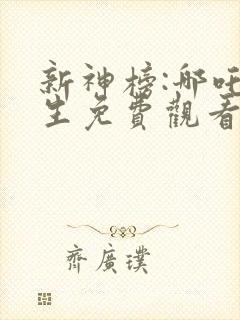 新神榜:哪吒
生免費觀看
齊廣璞